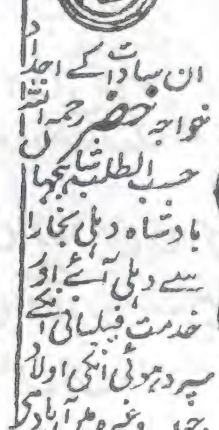 ان سادات کے اجداد
خواجہ خضر رحمہ اللہ
حسب الطلب شاہجہاں
بادشاہ دہلی بخارا
سے دہلی آئے اور
خدمت فیلبانی انکے
سپرد ہوئی انکی اولاد
وغیرہ میں آباد ہی